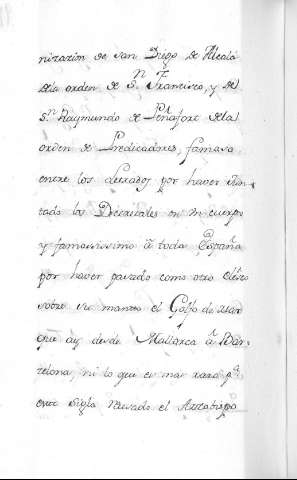 nizazion de San Diego de Alcalá
de la orden de Sn. Francisco, y de
Sn. Raymundo de Peñafort de la
orden de Predicadores, famoso
entre los Letrados por haver Jun-
tado los Decretales en un cuerpo
y famosissimo á toda España
por haver pasado como otro
sobre su manto el Golfo de Mar
que ay desde Mallorca á Bar-
zelona, ni lo que es mas raro pa.
este siglo llevado el Arzobispo